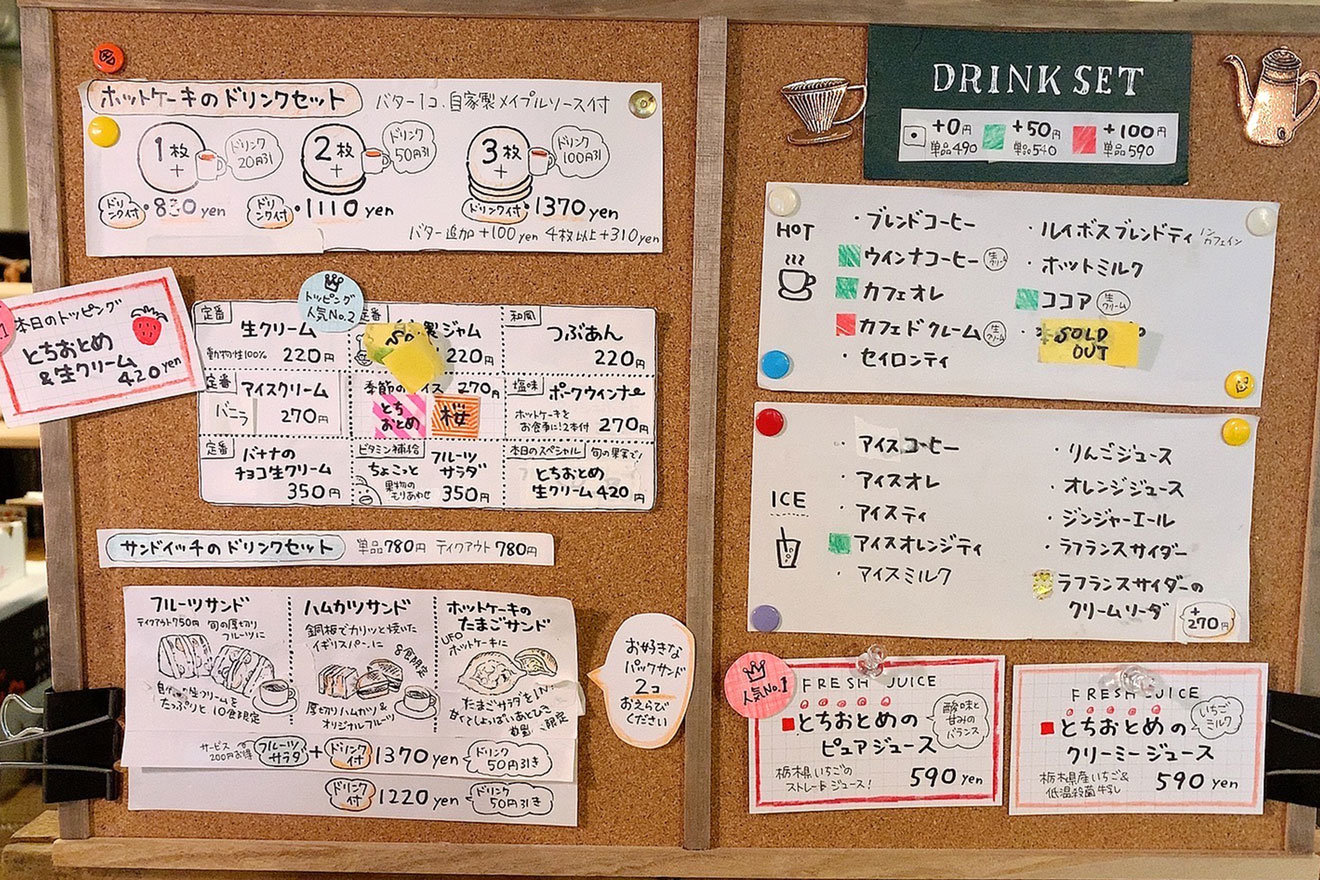 ホットケーキのドリンクセット バター1コ、自家製メイプルソース付
1枚 + ドリンク 20円引
2枚 + ドリンク 50円引
3枚 + ドリンク 100円引
ドリンク付・830yen
ドリンク付・1110yen
ドリンク付・1370yen
バター追加 +100yen 4枚以上 +310yen
本日のトッピング
とちおとめ
&生クリーム
420yen
トッピング
人気No.2
定番 生クリーム
動物性100% 220円
ジャム
220円
和風 つぶあん
220円
定番 アイスクリーム
バニラ 270円
季節のアイス 270円
とちおとめ 桜
塩味 ポークウィンナー
ホットケーキを
お食事に!2本付 270円
定番 バナナの
チョコ生クリーム
350円
ビタミン補給 フルーツ
ちょこっと サラダ
果物の
もりあわせ 350円
本日のスペシャル 旬の果実で!
とちおとめ
生クリーム 420円
サンドイッチのドリンクセット 単品780円 テイクアウト780円
フルーツサンド
テイクアウト750円 旬の厚切り
フルーツに
生クリームを
たっぷりと 10食限定
ハムカツサンド
銅板でカリッと焼いた
イギリスパンに 8食限定
厚切りハムカツ&
オリジナルフルーツ
ホットケーキの
たまごサンド
UFO
ホットケーキに
たまごサラダをIN♪
甘くてしょっぱいあとひき
限定
サービス
200円お得 フルーツサラダ + ドリンク付 1370yen ドリンク 50円引き
ドリンク付 1220yen ドリンク 50円引き
お好きな
パックサンド
2コ
おえらび
ください
DRINK SET
+0円 +50円 +100円
単品490 単品540 単品590
HOT
・ブレンドコーヒー
ウインナコーヒー 生クリーム
カフェオレ
カフェドクレーム 生クリーム
・セイロンティ
・ルイボスブレンドティ ノンカフェイン
・ホットミルク
ココア 生クリーム
SOLD
OUT
ICE
・アイスコーヒー
・アイスオレ
・アイスティ
アイスオレンジティ
・アイスミルク
・りんごジュース
・オレンジジュース
・ジンジャーエール
・ラフランスサイダー
ラフランスサイダーの
クリームソーダ +270円
人気No.1
FRESH JUICE
とちおとめの
ピュアジュース
酸味と
甘みの
バランス
栃木県いちごの
ストレートジュース! 590yen
FRESH JUICE
とちおとめの
クリーミージュース
いちご
ミルク
栃木県産いちご&
低温殺菌牛乳 590yen